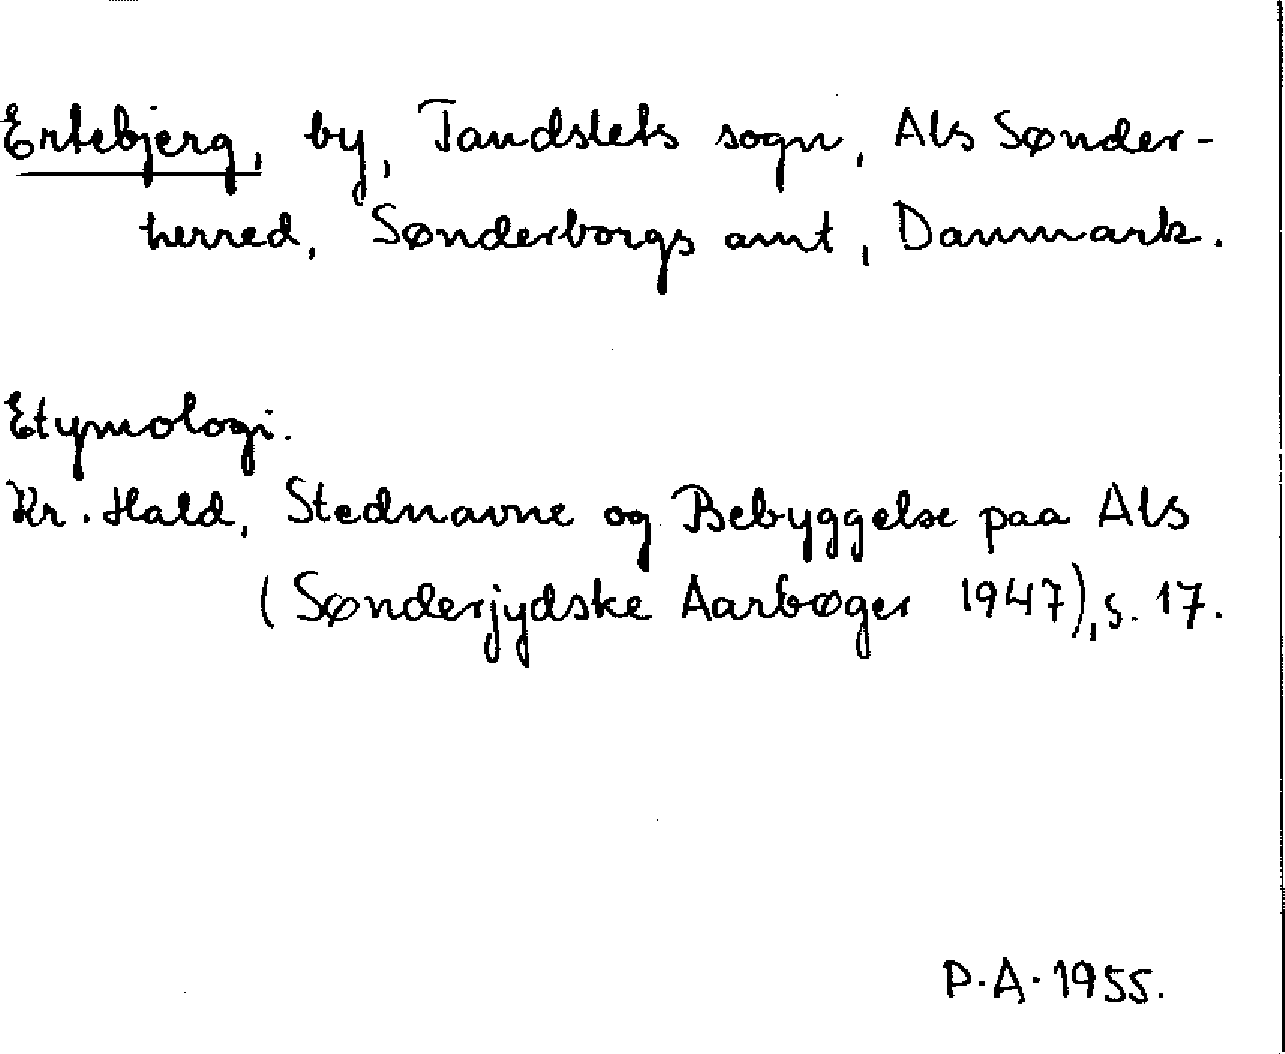 Ertebjerg, by, Tandslets sogn, Als Sønder-
herred, Sønderborgs amt, Danmark.
Etymologi.
Kr. Hald, Stednavne og Bebyggelse paa Als
(Sønderjydske Aarbøger 1947), s. 17.
P.A. 1955.